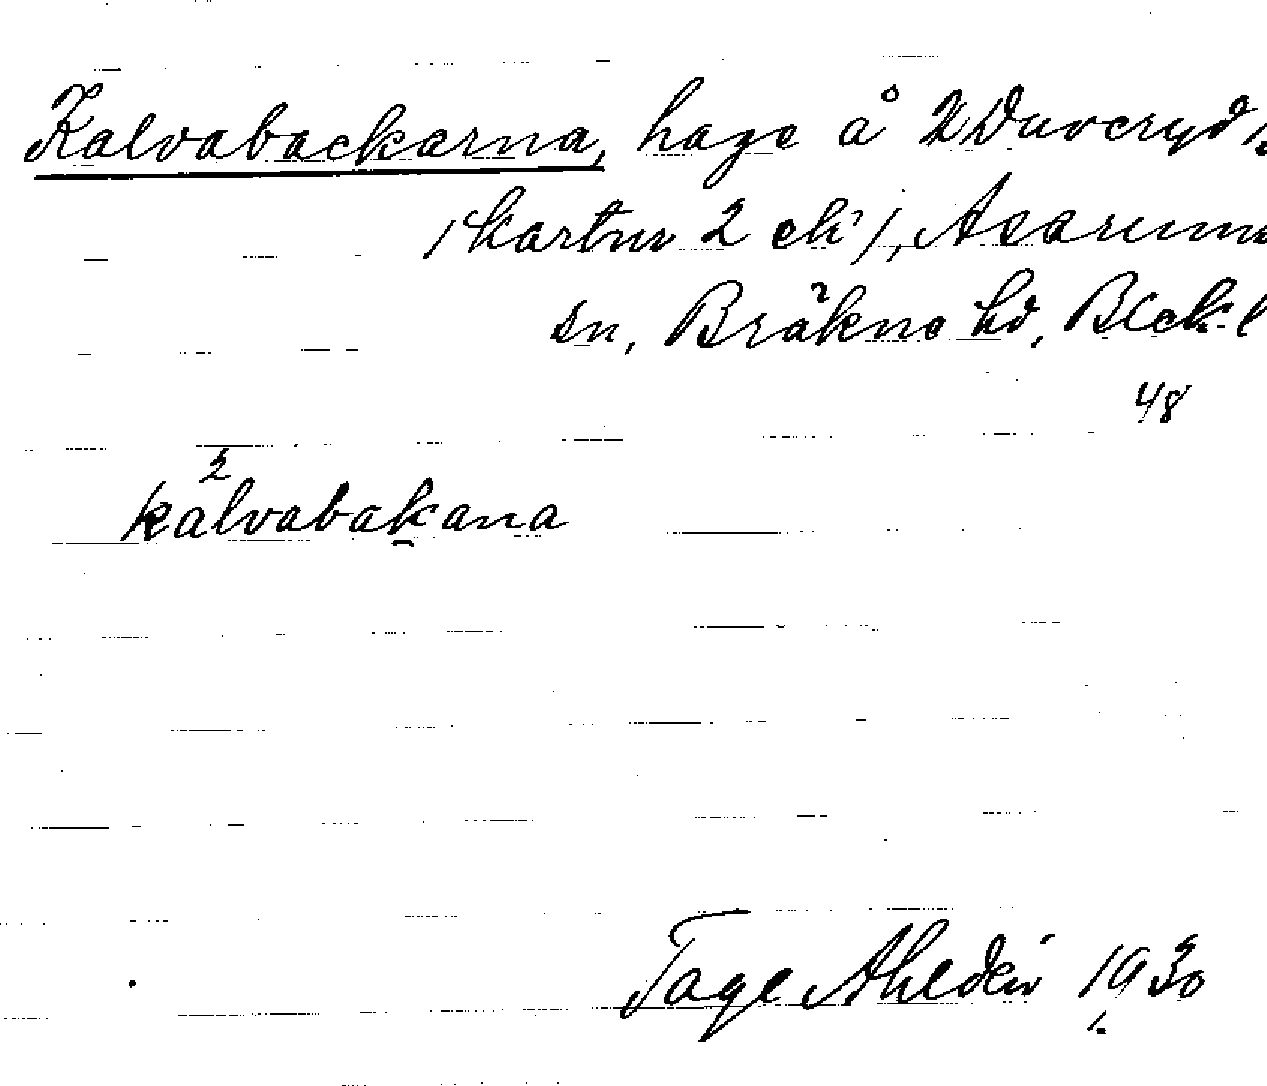 Kalvabackarna, hage å 2 Duveryd
/kartnr 2 ek/, Asarum
sn, Bräkne hd, Blek. l
48
kalvabakana
Tage Ahldén 1930